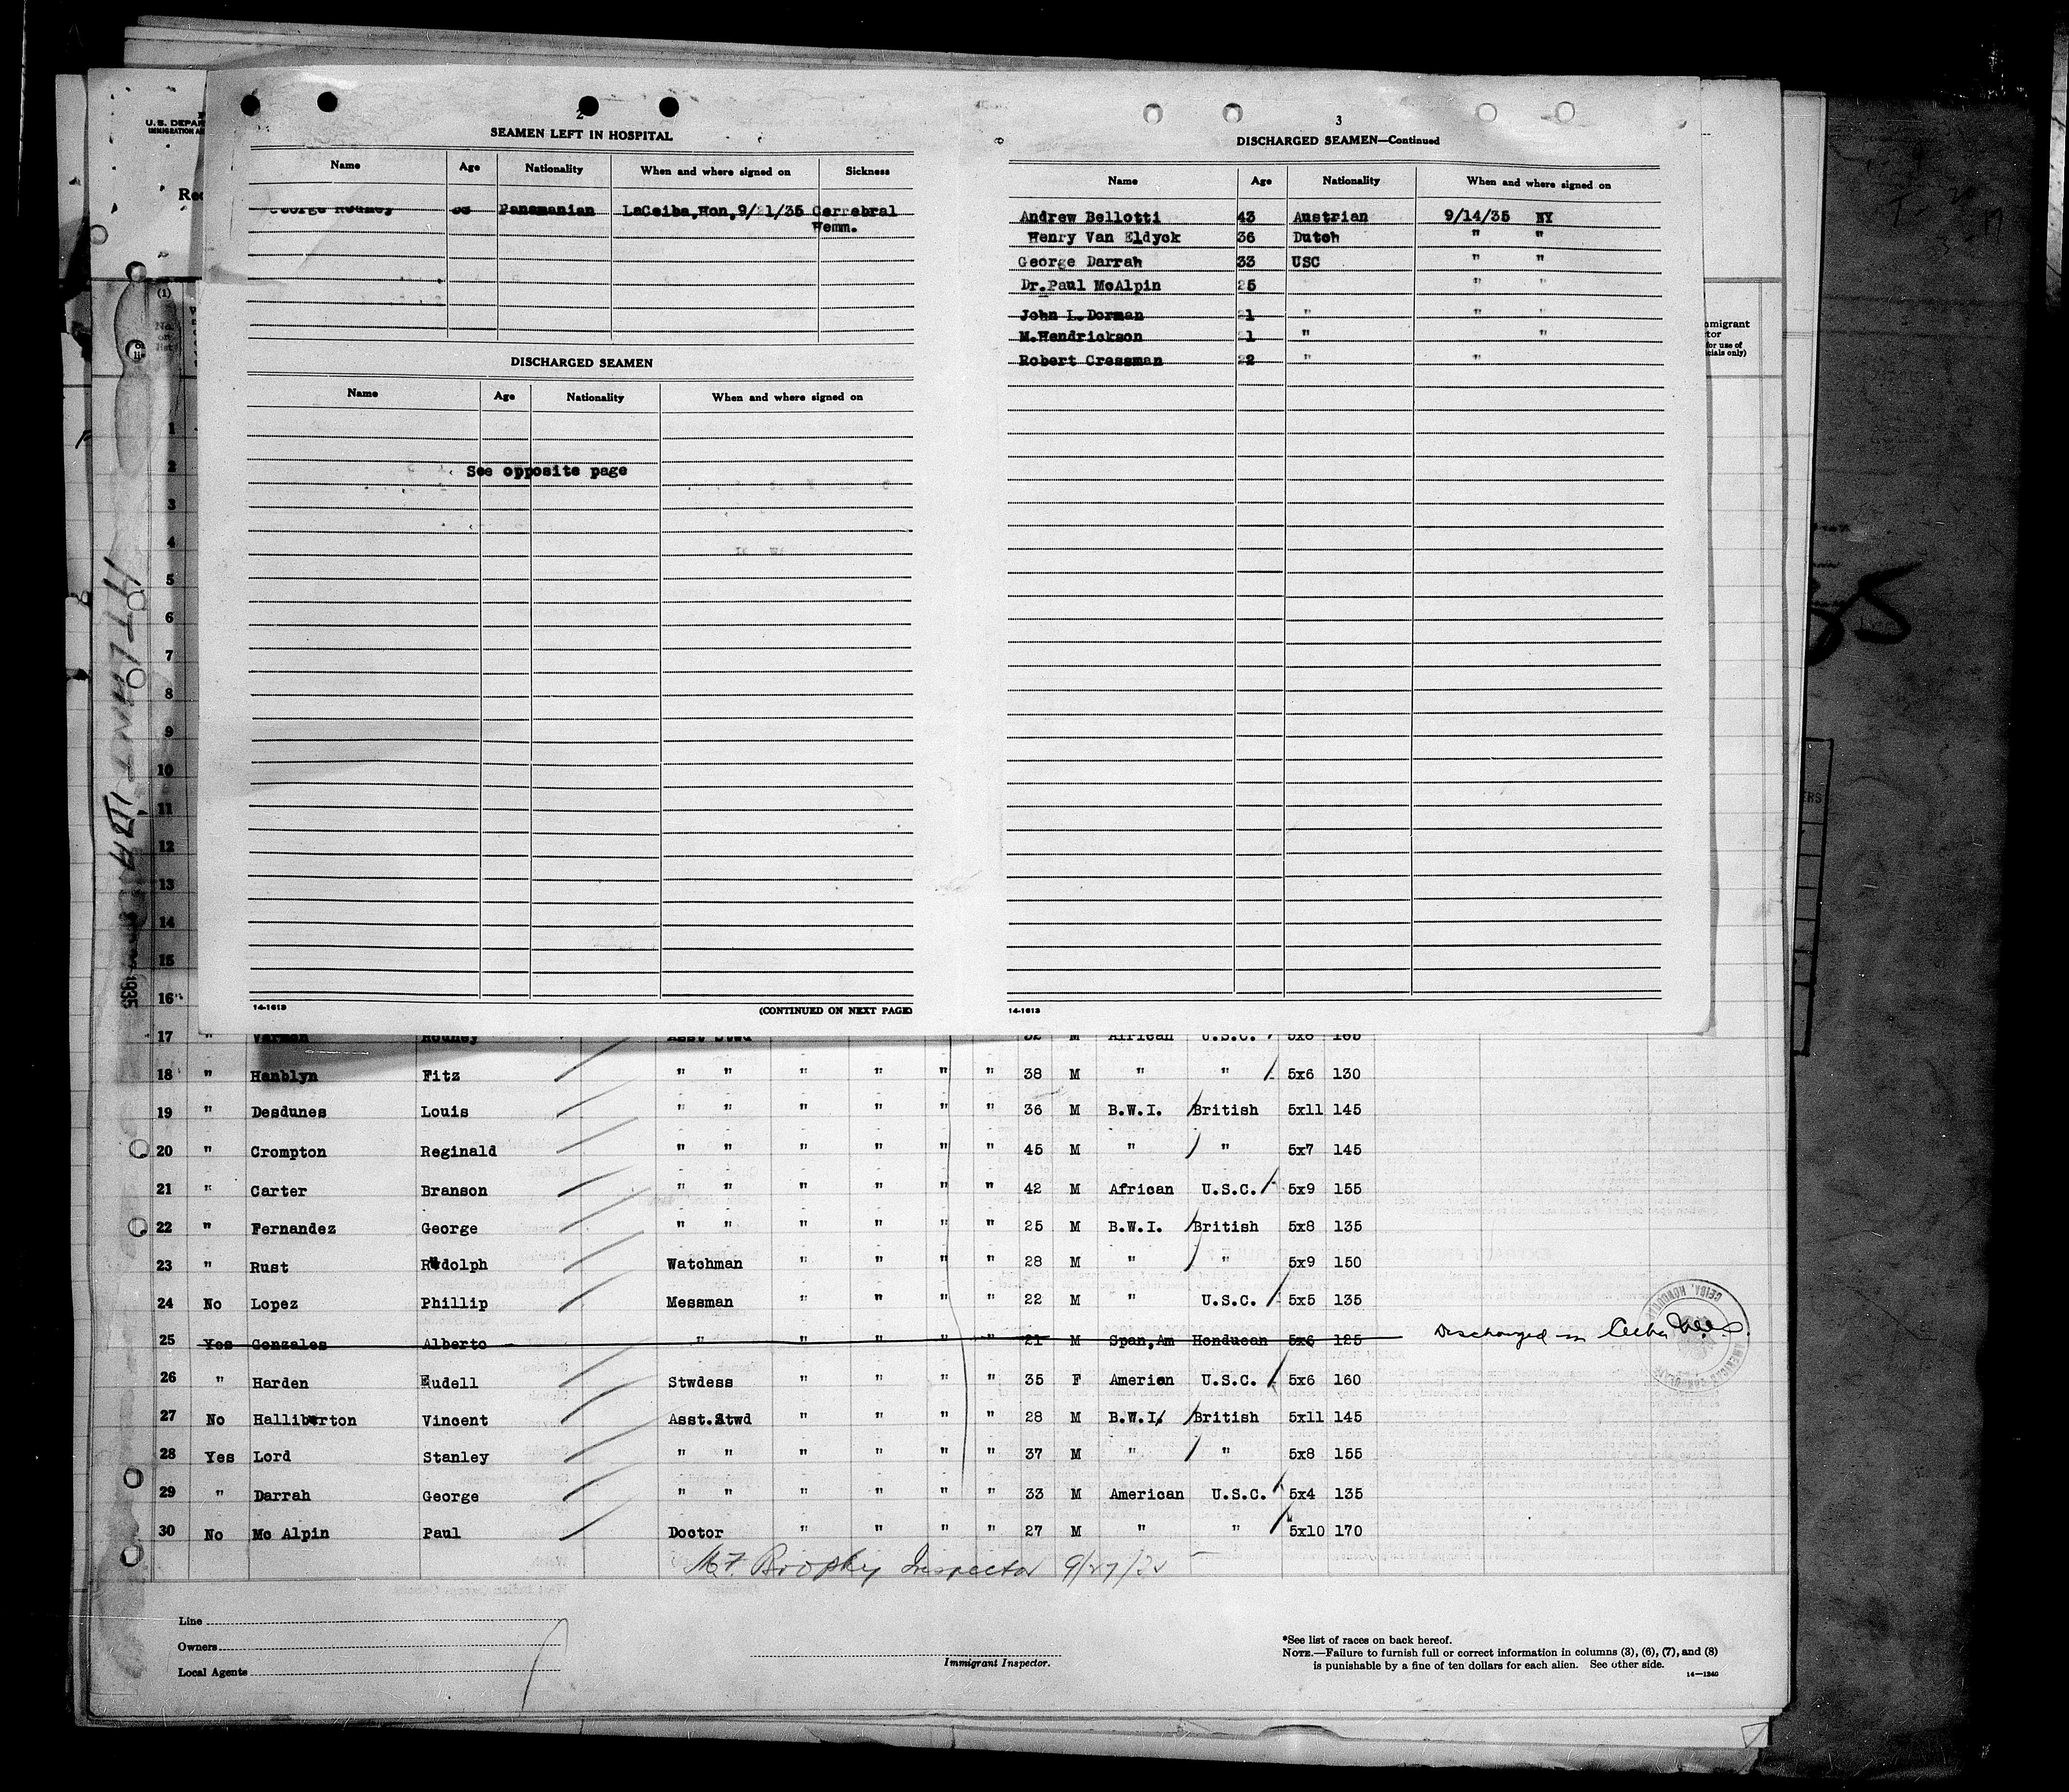 U.S. DEPAR
IMMIGRATION AN
Rec
2
SEAMEN LEFT IN HOSPITAL
Name Age Nationality When and where signed on Sickness
George Panamanian LaCeiba,Hon,9/21/35 Cerrebral
Hemm.
DISCHARGED SEAMEN
Name Age Nationality When and where signed on
See opposite page
14-1613 (CONTINUED ON NEXT PAGE)
3
DISCHARGED SEAMEN—Continued
Name Age Nationality When and where signed on
Andrew Bellotti 43 Austrian 9/14/35 NY
Henry Van Eldyck 36 Dutch " "
George Darrah 33 USC " "
Dr.Paul McAlpin 25 " "
John L.Dorman 21 " " "
M.Hendrickson 21 " "
Robert Cressman 22 " "
14-1613
mmigrant
tor
for use of
icials only)
(1)
No.
on
list
1
2
3
4
5
6
7
8
9
10
11
12
13
14
15
16
ATLANTIDA
1935
17 " Vernon Rodney Asst Stwd 32 M African U.S.C. 5x8 165
18 " Hanblyn Fitz " " " " " " 38 M " " 5x6 130
19 " Desdunes Louis " " " " " " 36 M B.W.I. British 5x11 145
20 " Crompton Reginald " " " " " " 45 M " " 5x7 145
21 " Carter Branson " " " " " " 42 M African U.S.C. 5x9 155
22 " Fernandez George " " " " " " 25 M B.W.I. British 5x8 135
23 " Rust Rudolph Watchman " " " " 28 M " " 5x9 150
24 No Lopez Phillip Messman " " " " 22 M " U.S.C. 5x5 135
25 Yes Gonzales Alberto " " " " " 21 M Span,Am Honducan 5x6 125 Discharged in Ceiba
26 " Harden Eudell Stwdess " " " " 35 F Amerien U.S.C. 5x6 160
27 No Halliburton Vincent Asst.Stwd " " " " 28 M B.W.I. British 5x11 145
28 Yes Lord Stanley " " " " " " 37 M " " 5x8 155
29 " Darrah George " " " " " " 33 M American U.S.C. 5x4 135
30 No Mc Alpin Paul Doctor " " " " 27 M " " 5x10 170
M.F. Brophy Inspector 9/27/35
Line
Owners
Local Agents
Immigrant Inspector.
*See list of races on back hereof.
NOTE.—Failure to furnish full or correct information in columns (3), (6), (7), and (8)
is punishable by a fine of ten dollars for each alien. See other side.
14—1240